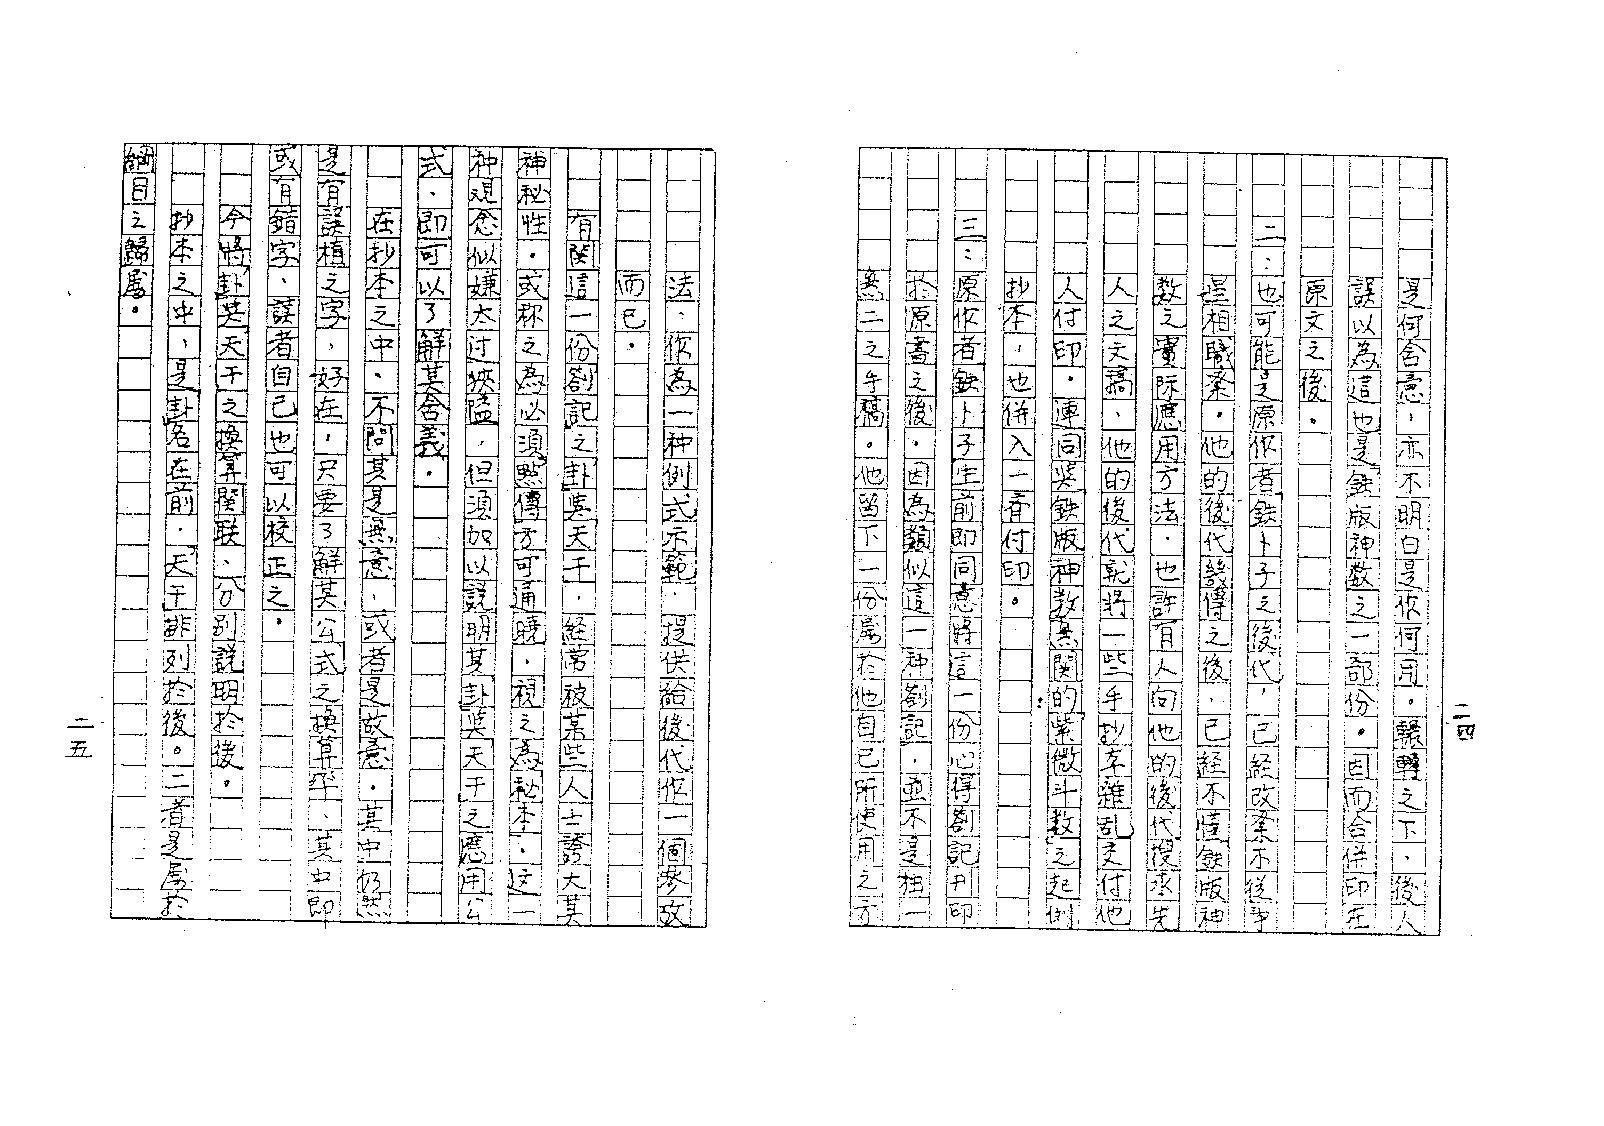 二四
是何含意，亦不明白是作何用。輾轉之下，後人
誤以為這也是鉄版神数之一部份。因而合併印在
原文之後。
二：也可能是原作者鉄卜子之後代，已經改業不從事
星相職業。他的後代幾傳之後，已經不懂鉄版神
数之實际應用方法，也許有人向他的後代搜求先
人之文稿，他的後代就將一些手抄本雜乱交付他
人付印。連同與鉄版神数無関的紫微斗数之起例
抄本，也併入一齊付印。
三：原作者鉄卜子生前即同意將這一份心得劄記刋印
於原書之後。因為類似這一种劄記，並不是独一
無二之手稿。他留下一份屬於他自己所使用之方
法，作為一种例式示範，提供給後代作一個參攷
而已。
有関這一份劄記之卦與天干，経常被某些人士誇大其
神秘性。或称之為必須黙傳方可通曉，視之為秘本，这一
种观念似嫌太过狹隘，但須加以説明其卦與天干之應用公
式，即可以了解其含義。
在抄本之中，不問其是無意，或者是故意，其中仍然
是有誤植之字，好在，只要了解其公式之換算平，其中即
或有錯字、誤者自己也可以校正之。
今將卦與天干之換算関联，分别説明於後。
抄本之中，是卦名在前，天干排列於後。二者是屬於
綱目之歸屬。
二五